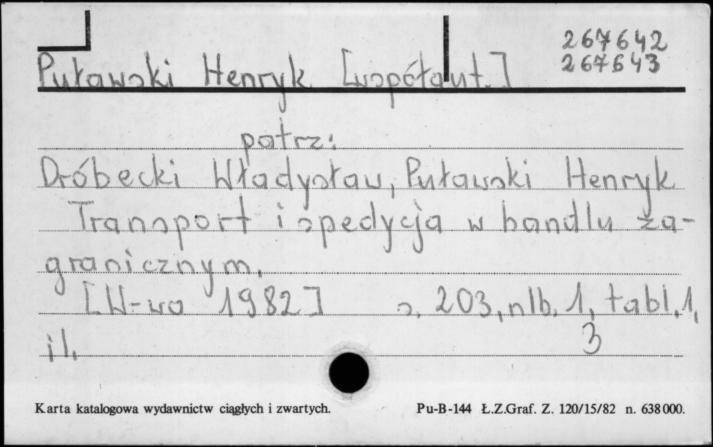 267642
Puławski Henryk [współaut.] 267643
patrz:
Dróbecki Władysław, Puławski Henryk
Transport i spedycja w handlu za-
granicznym.
[W-wa 1982] s. 203, nlb. 1, tabl. 1,
il. 3
Karta katalogowa wydawnictw ciągłych i zwartych. Pu-B-144 Ł.Z.Graf. Z. 120/15/82 n. 638000.